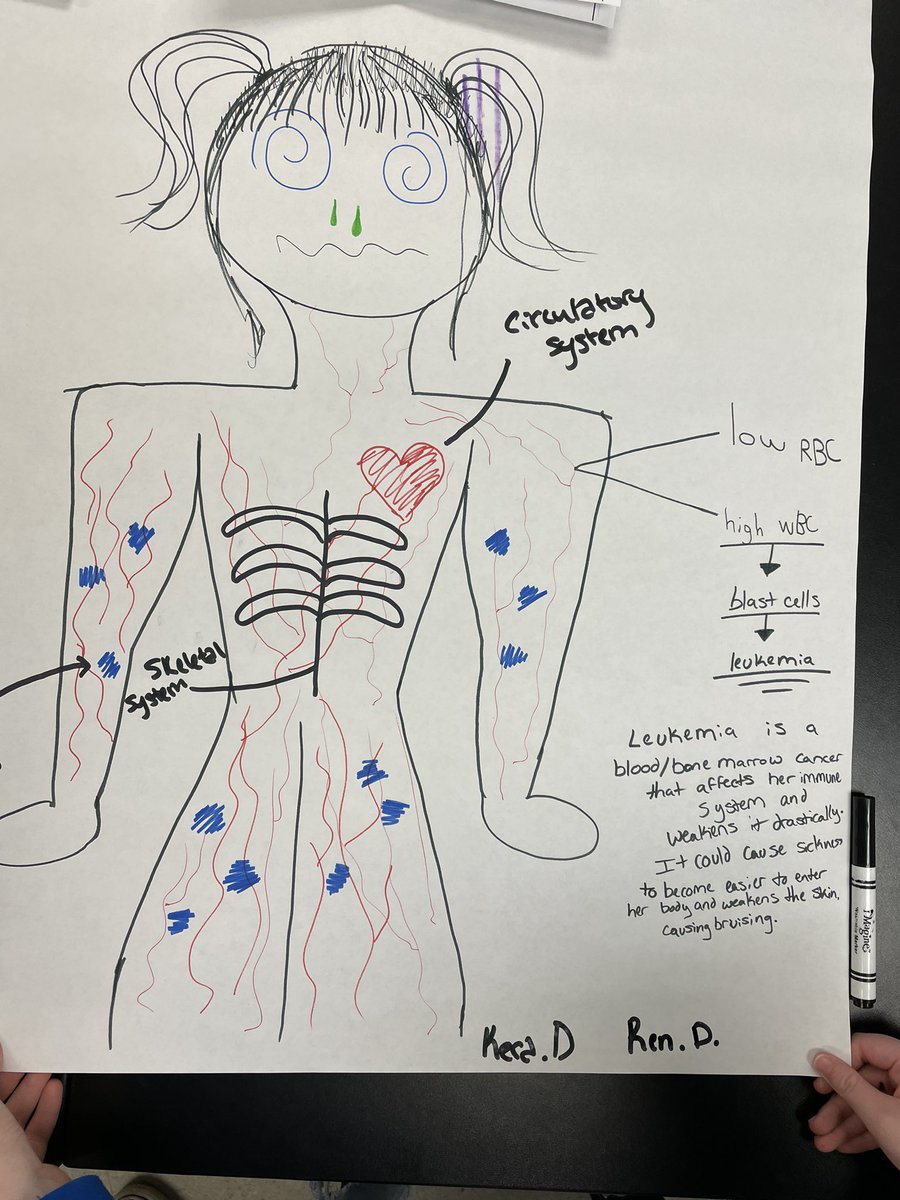 Circulatory
System
low RBC
high WBC
blast cells
leukemia
Skeletal
System
Leukemia is a
blood/bone marrow cancer
that affects her immune
System and
weakens it drastically.
It could cause sickness
to become easier to enter
her body and weakens the skin,
causing bruising.
Kera.D Ren.D.
iMagine